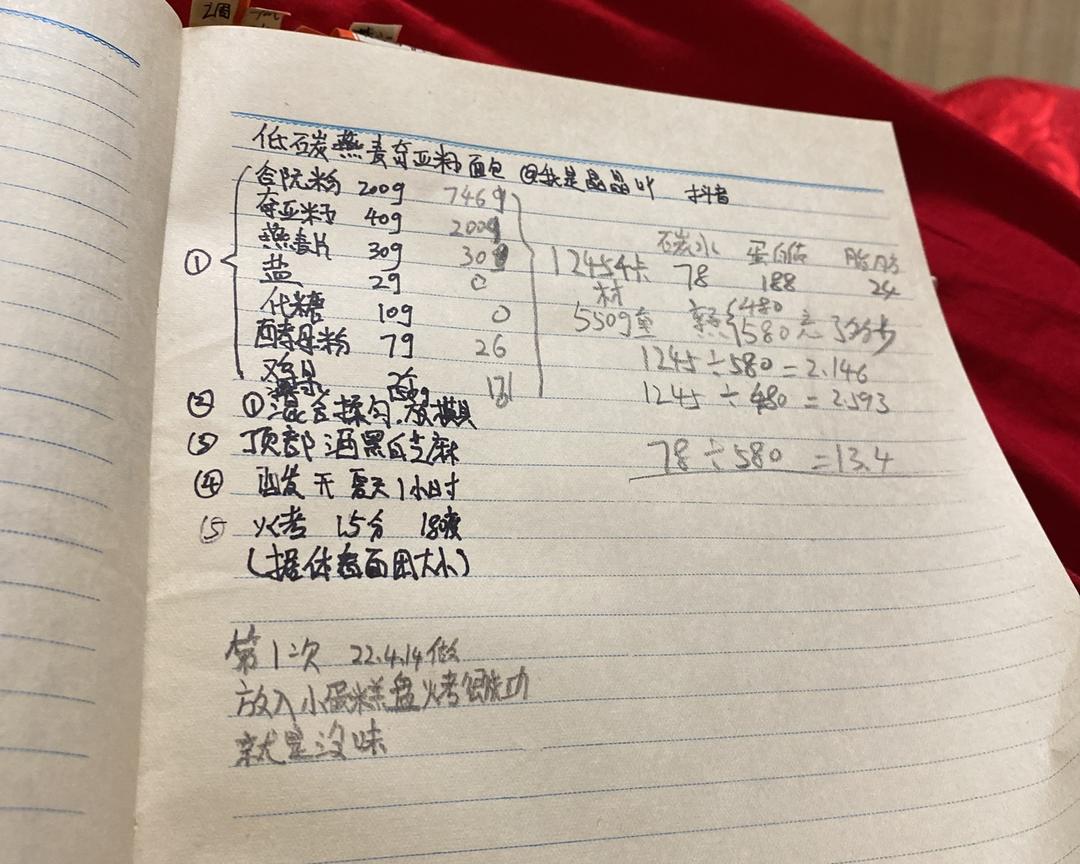 2周
低碳燕麦奇亚籽面包 @我是晶晶吖 抖音
① 谷朊粉 200g 746
奇亚籽 40g 200
燕麦片 30g 30
盐 2g 0
代糖 10g 0
酵母粉 7g 26
鸡蛋
② ①混合揉匀.放模具
③ 顶部洒黑白芝麻
④ 匹发 无 夏天1小时
⑤ 火考 15分 180度
(据体看面团大小)
碳水 蛋白质 脂肪
1245卡 78 188 24
材
550g重 熟 480
580
1245÷580=2.146
1245÷480=2.593
78÷580=13.4
第1次 22.4.14做
放入小蛋糕盘火考很成功
就是没味